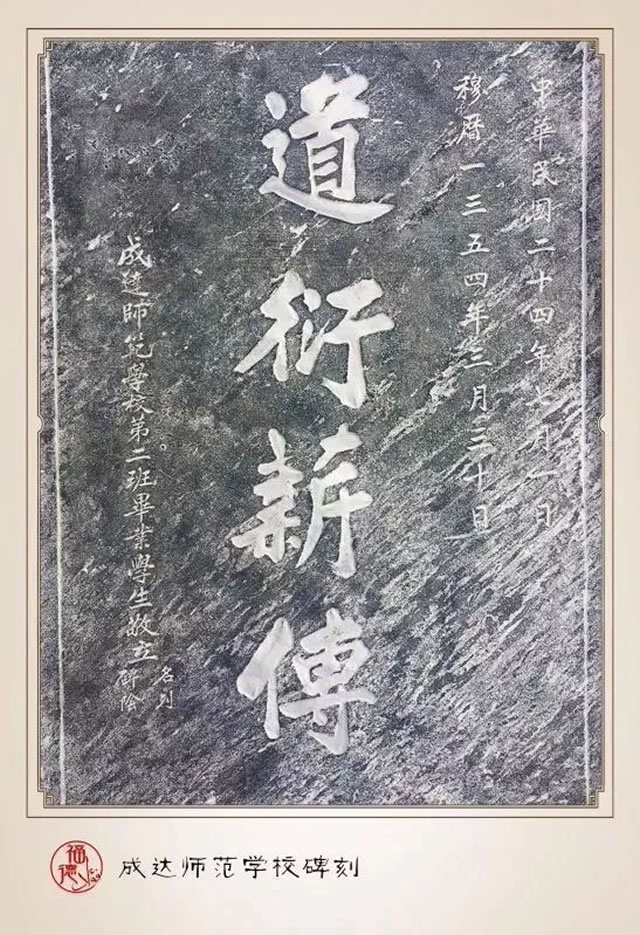 中華民國二十四年七月一日
穆曆一三五四年三月三十日
道衍薪傳
成達師範學校第二班畢業學生敬立
名列
碑陰
福德
成达师范学校碑刻